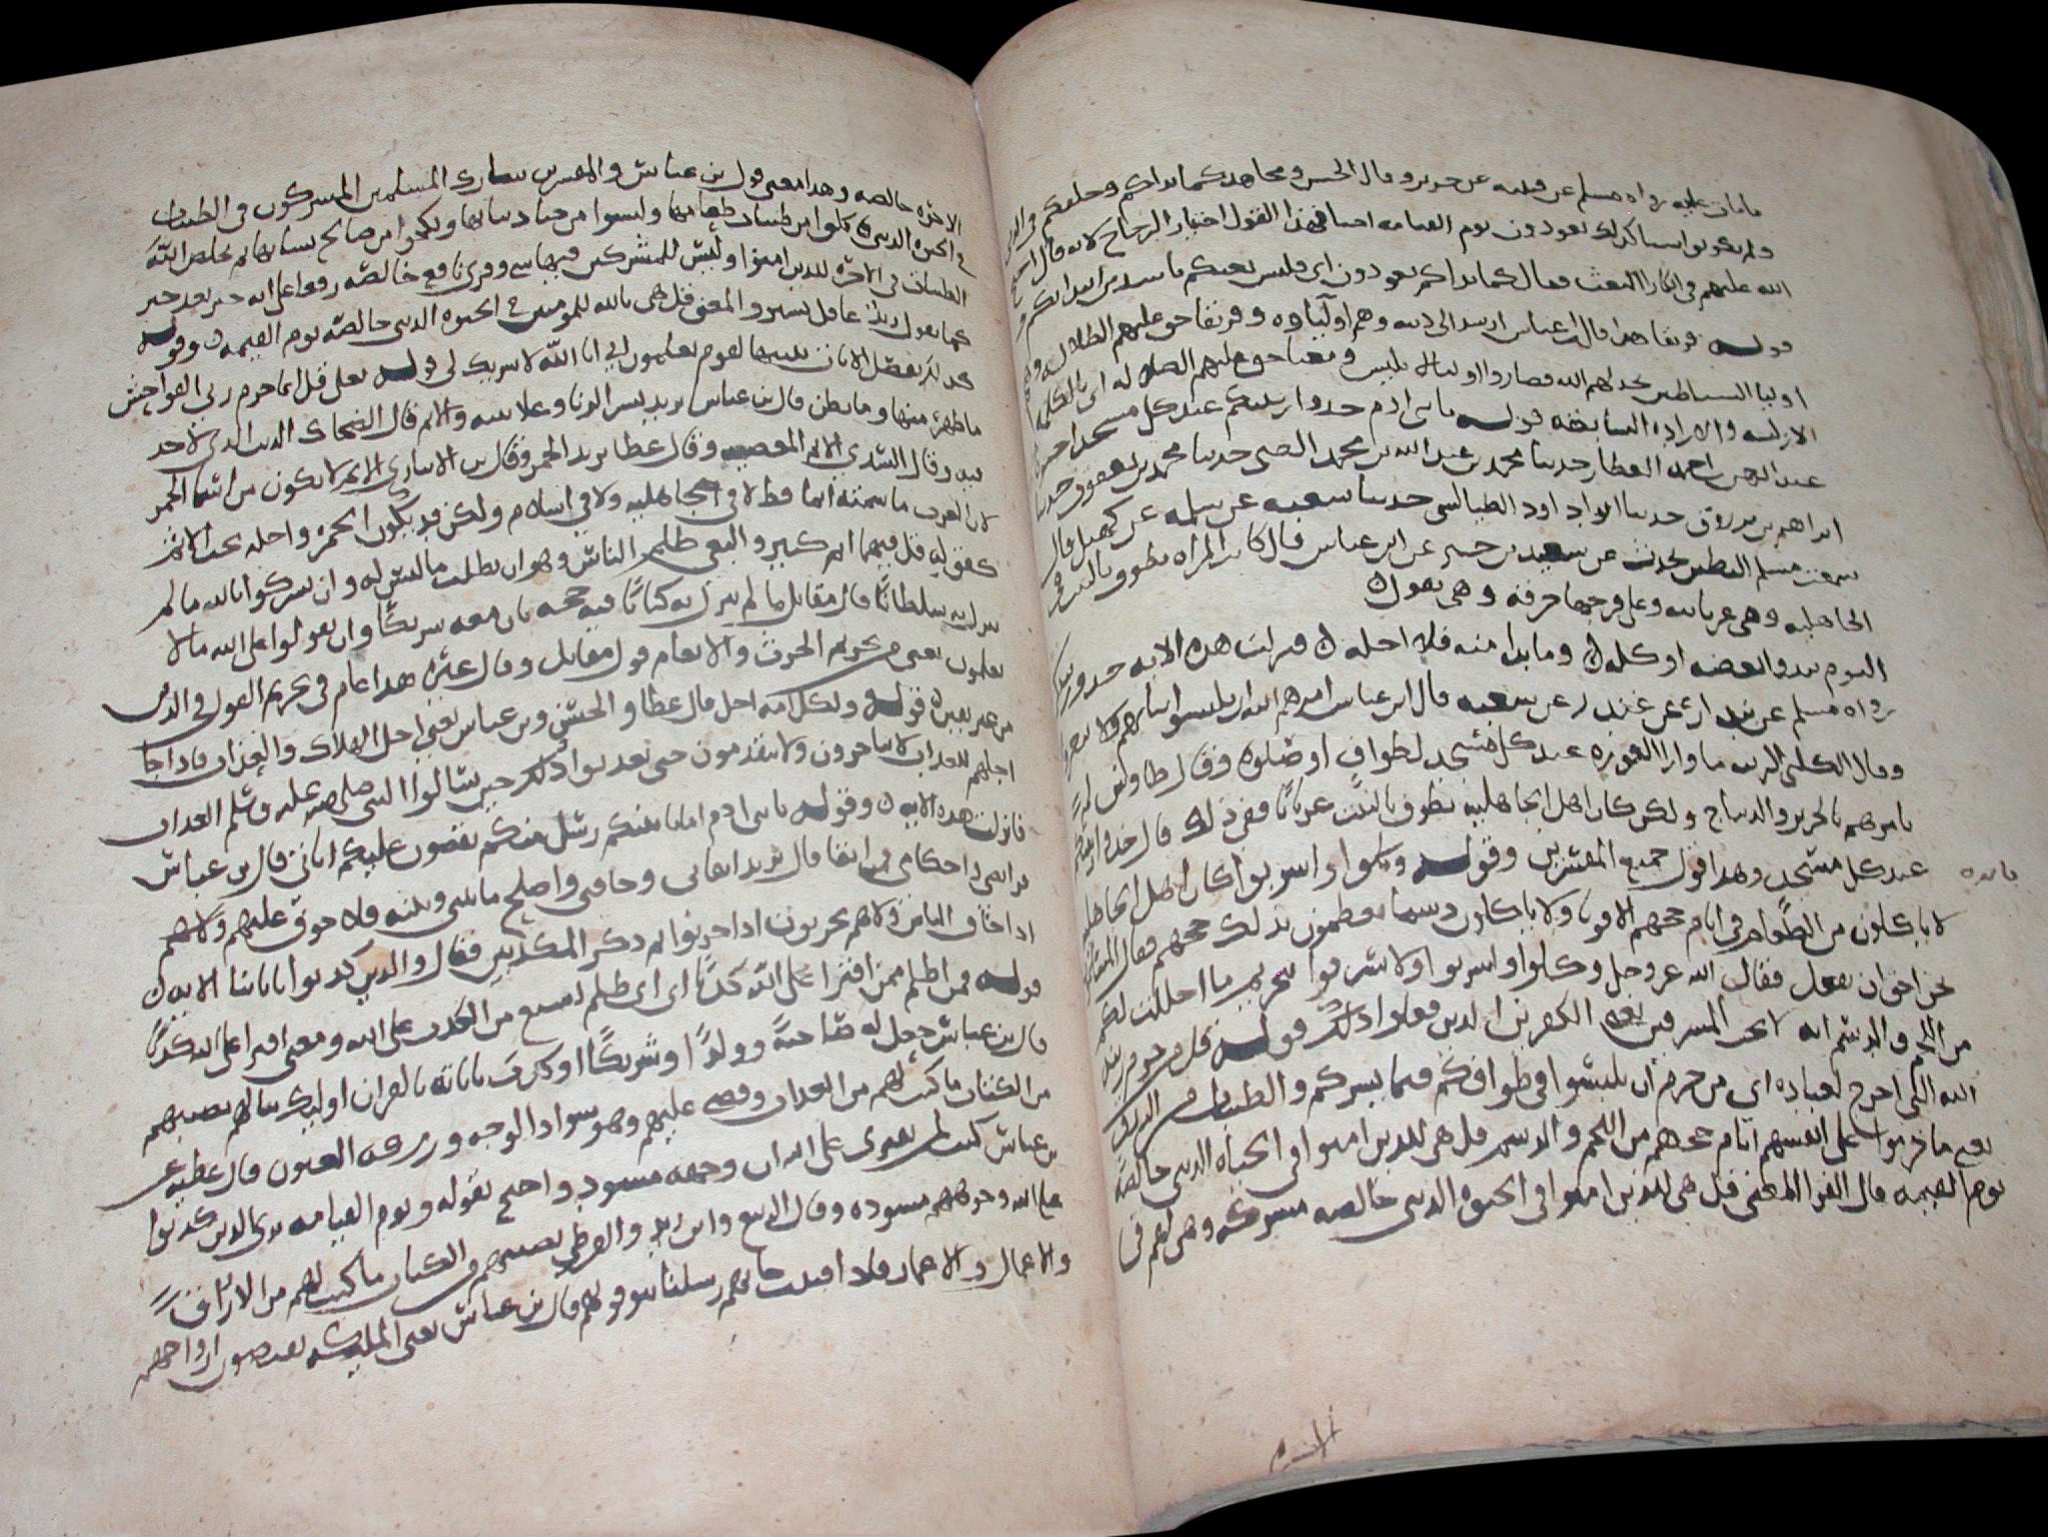 ما مات عليه رواه مسلم عن قتيبه عن جرير وقال الحسن ومجاهد كما بداكم وخلقكم في الدنيا
ولم تكونوا شيا كذلك تعودون يوم القيامه احيا فهذا القول اختيار الزجاج لانه قال احتج
الله عليهم في انكارهم البعث فقال كما بداكم تعودون اي فليس بعثكم باشد من ابتدائكم و
قوله فريقا هدا قال ابن عباس ارشد الى دينه وهم اولياوه وفريقا حق عليهم الضلاله
اوليا الشياطين يخذلهم الله فصاروا اوليا لابليس ومعنا حق عليهم الضلاله اي بالكلمه
الازليه والاراده السابقه قوله يا بني ادم خذوا زينتكم عند كل مسجد اخبرنا
عبد الرحمن بن احمد العطار حدثنا محمد بن عبد الله بن محمد الضبي حدثنا محمد بن يعقوب حدثنا
ابراهيم بن مرزوق حدثنا ابو داود الطيالسي حدثنا شعبه عن سلمه عن كهيل قال
سمعت مسلم البطين يحدث عن سعيد بن جبير عن ابن عباس قال كانت المراه تطوف بالبيت في
الجاهليه وهي عريانه وعلى فرجها خرقه وهي تقول
اليوم يبدو بعضه او كله وما بدا منه فلا احله فنزلت هذه الايه خذوا زينتكم
رواه مسلم عن بندار عن غندر عن شعبه قال ابن عباس امرهم الله ان يلبسوا ثيابهم ولا يتعروا
وقال الكلبي الزينه ما وارا العوره عند كل مسجد لطواف او صلوه وقال طاوس لم
يامرهم بالحرير والديباج ولكن كان اهل الجاهليه يطوف بالبيت عريانا ففي ذلك قال خذوا زينتكم
عند كل مسجد وهذا قول جميع المفسرين وقوله وكلوا واشربوا كان اهل الجاهليه
فايده
لا ياكلون من الطعام في ايام حجهم الا قوتا ولا ياكلون دسما يعظمون بذلك حجهم فقال المسلمون
نحن احق ان نفعل فقال الله عز وجل وكلوا واشربوا ولا تسرفوا بتحريم ما احللت لكم
من اللحم والدسم انه لا يحب المسرفين يعني الكفرين الذين فعلوا ذلك قوله قل من حرم زينه
الله التي اخرج لعباده اي من حرم ان تلبسوا في طوافكم فيما يستركم والطيبات من الرزق
يعني ما حرموا على انفسهم ايام حجهم من اللحم والدسم قل هي للذين امنوا في الحياه الدنيا خالصه
يوم القيمه قال الفرا المعنى قل هي للذين امنوا في الحيوه الدنيا خالصه مشتركه وهي لهم في
الاخره خالصه وهذا معنى قول بن عباس والمفسرين شارك المسلمين المشركون في الطيبات
في الحيوه الدنيا فاكلوا من طيبات طعامها ولبسوا من جياد ثيابها ونكحوا من صالح نسائها ثم يخلص الله
الطيبات في الاخره للذين امنوا وليس للمشركين فيها شي وقري نافع خالصه رفعا على انه خبر بعد خبر
كما تقول زيد عاقل لبيب والمعنى قل هي ثابته للمومنين في الحيوه الدنيا خالصه يوم القيمه وقوله
كذلك نفصل الايات نبينها لقوم يعلمون اني انا الله لا شريك لي قوله تعلى قل انما حرم ربي الفواحش
ما ظهر منها وما بطن قال بن عباس يريد بسر الزنا وعلانيته والاثم قال الضحاك الذنب الذي لا حد
فيه وقال السدي الاثم المعصيه وقال عطا يريد الخمر وقال بن الانباري الاثم لا يكون من اسما الخمر
لان العرب ما سمته اثما قط لا في الجاهليه ولا في اسلام ولكن قد يكون الخمره داخله تحت الاثم
كقوله قل فيهما اثم كبير والبغي ظلم الناس وهو ان يطلب ما ليس له وان تشركوا بالله ما لم
ينزل به سلطانا قال مقاتل ما لم ينزل به كتابا فيه حجه بان معه شريكا وان تقولوا على الله ما لا
تعلمون يعني من تحريم الحرث والانعام قول مقاتل وقال غيره هذا عام في تحريم القول في الدين
من غير يقين قوله ولكل امه اجل قال عطا والحسن وبن عباس يعني اجل الهلاك والعذاب فاذا جا
اجلهم للعذاب لا يستاخرون ولا يستقدمون حتى يعذبوا وذلك حين سالوا النبي صلى الله عليه وسلم العذاب
فانزلت هذه الايه وقوله يا بني ادم اما ياتينكم رسل منكم يقصون عليكم اياتي قال بن عباس
فرايضي واحكامي فمن اتقا قال يريد اتقاني وخافني واصلح ما بيني وبينه فلا خوف عليهم ولا هم
اذا خاف الناس ولا هم يحزنون اذا حزنوا ثم ذكر المكذبين فقال والذين كذبوا باياتنا الايه
قوله فمن اظلم ممن افترا على الله كذبا اي اي ظلم اشنع من الكذب على الله ومعنى افترا على الله كذبا
قال بن عباس جعل له صاحبه وولدا او شريكا او كذب باياته بالقران اوليك ينالهم نصيبهم
من الكتاب ما كتب لهم من العذاب وقضي عليهم وهو سواد الوجه وزرقه العيون قال عطيه عن
بن عباس كتب لمن يفتري على الله ان وجهه مسود واحتج بقوله ويوم القيامه ترى الذين كذبوا
على الله وجوههم مسوده وقال الربيع وابن زيد والقرظي نصيبهم من الكتاب ما كتب لهم من الارزاق
والاعمال والاعمار فاذا فنيت جاتهم رسلنا يتوفونهم قال بن عباس يعني المليكه يقبضون ارواحهم